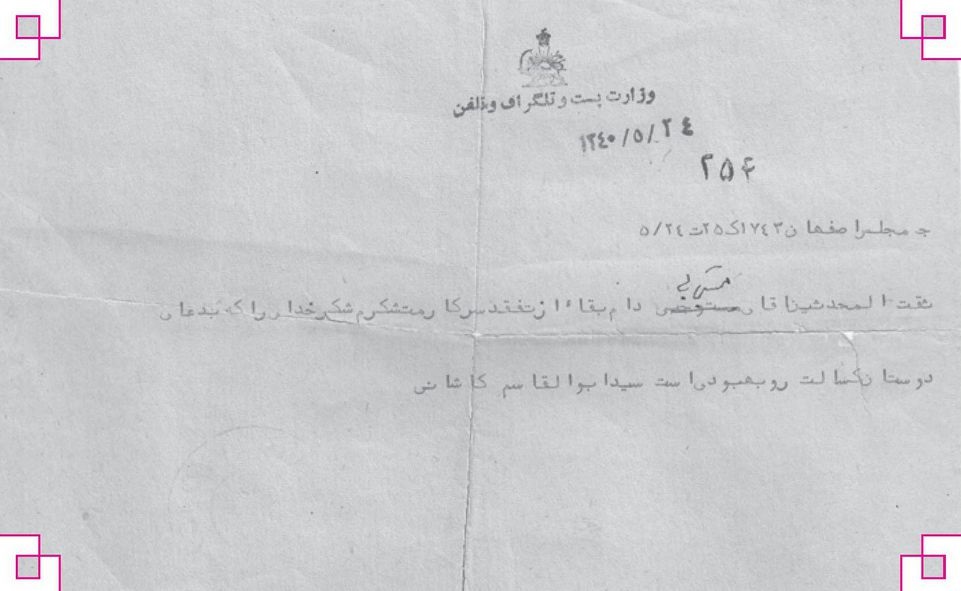 وزارت پست و تلگراف و تلفن
۱۳۴۰/۵/۲۴
۲۵۴
جـ مجلس اصفهان ۱۷۴۳ ک ۲۵ ت ۵/۲۴
ثقت المحدثین اقای دام بقاء از تفقد سرکار متشکرم شکر خدای را که بدعای
دوستان کسالت رو بهبودی است سید ابوالقاسم کاشانی